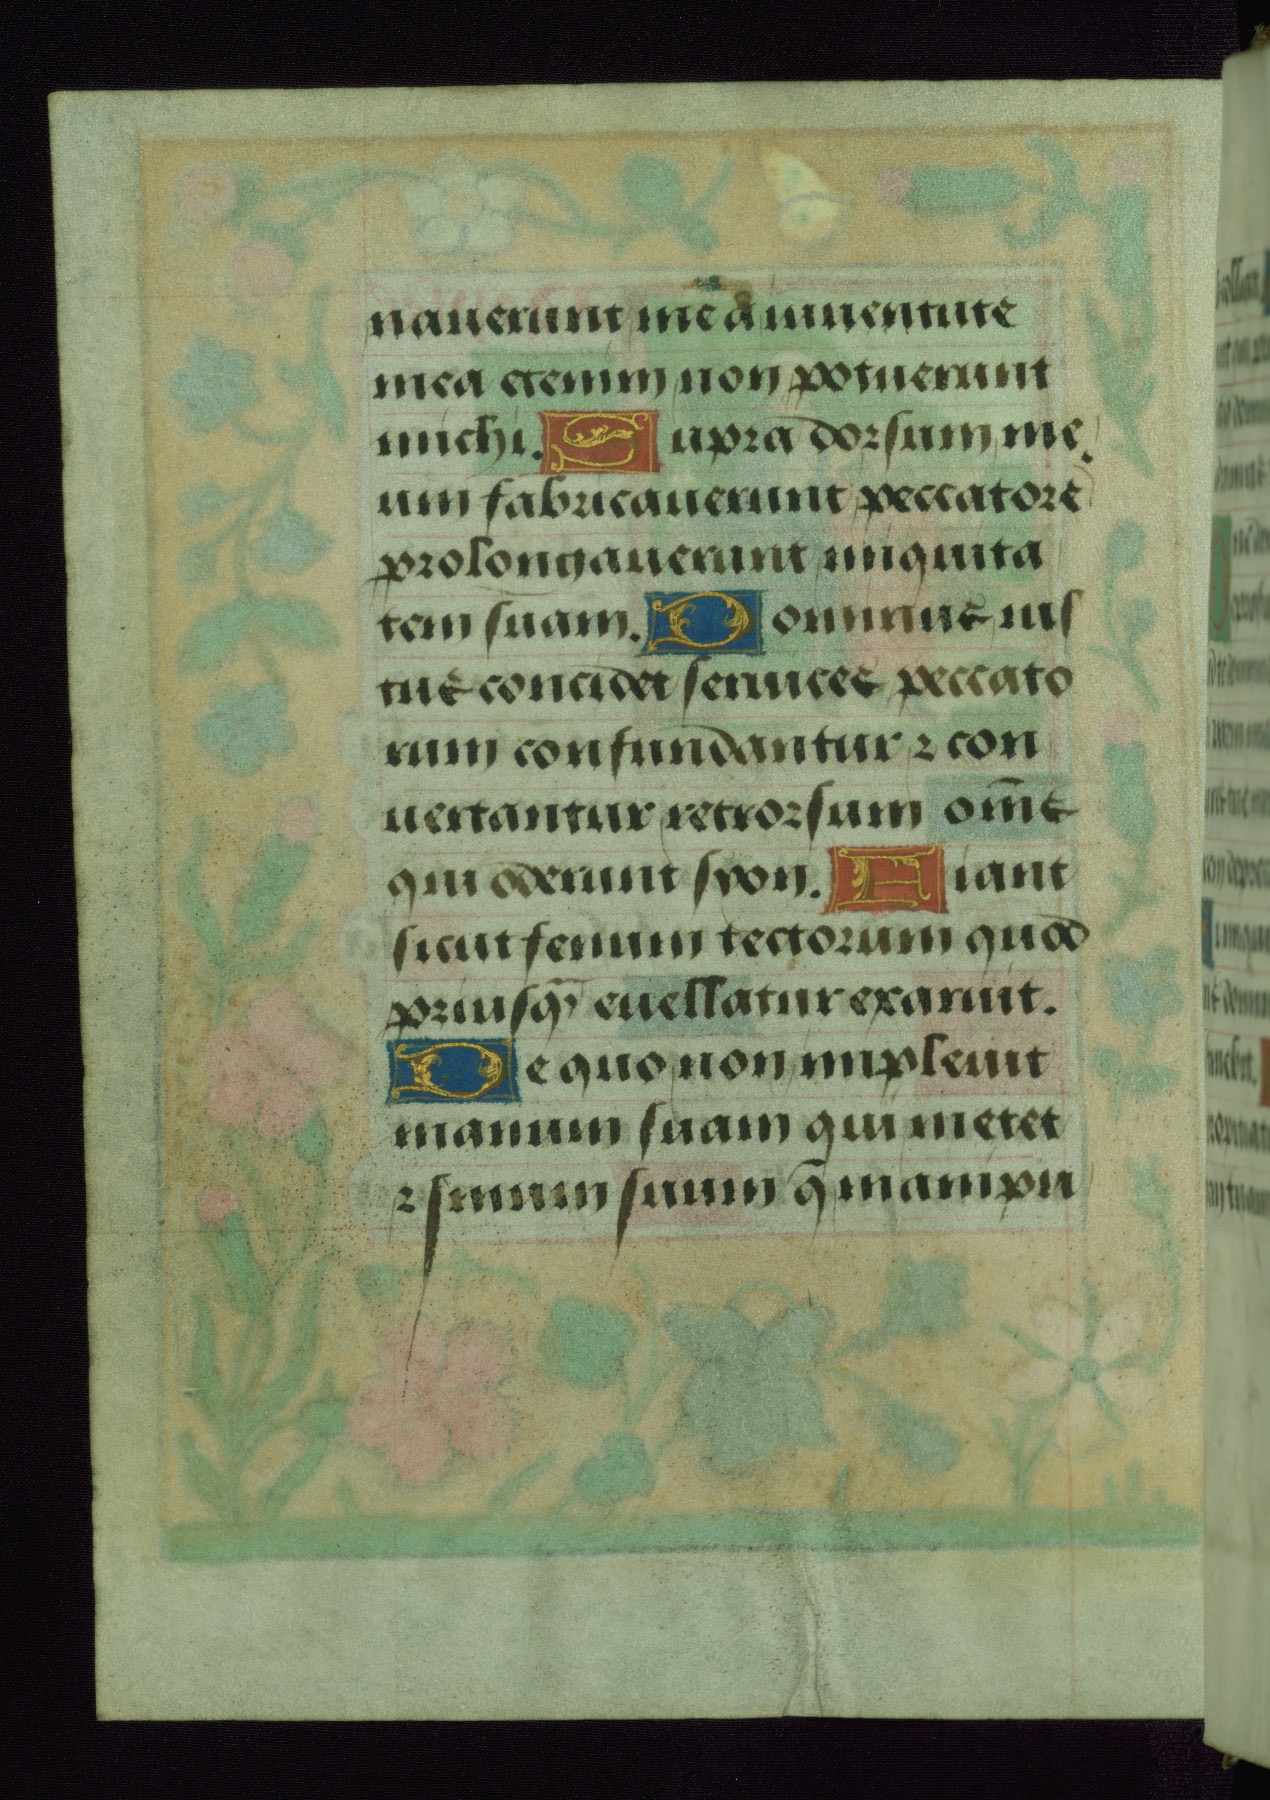 nauerunt me a iuuentute
mea etenim non potuerunt
michi. Supra dorsum me
um fabricauerunt peccatore
prolongauerunt iniquita
tem suam. Dominus ius
tus concidet seruices peccato
rum confundantur ⁊ con
uertantur retrorsum om̅s
qui oderunt syon. Fiant
sicut fenum tectorum quod
priusq̃ euellatur exaruit.
De quo non impleuit
manum suam qui metet
⁊ sinum suum q̅ manipu